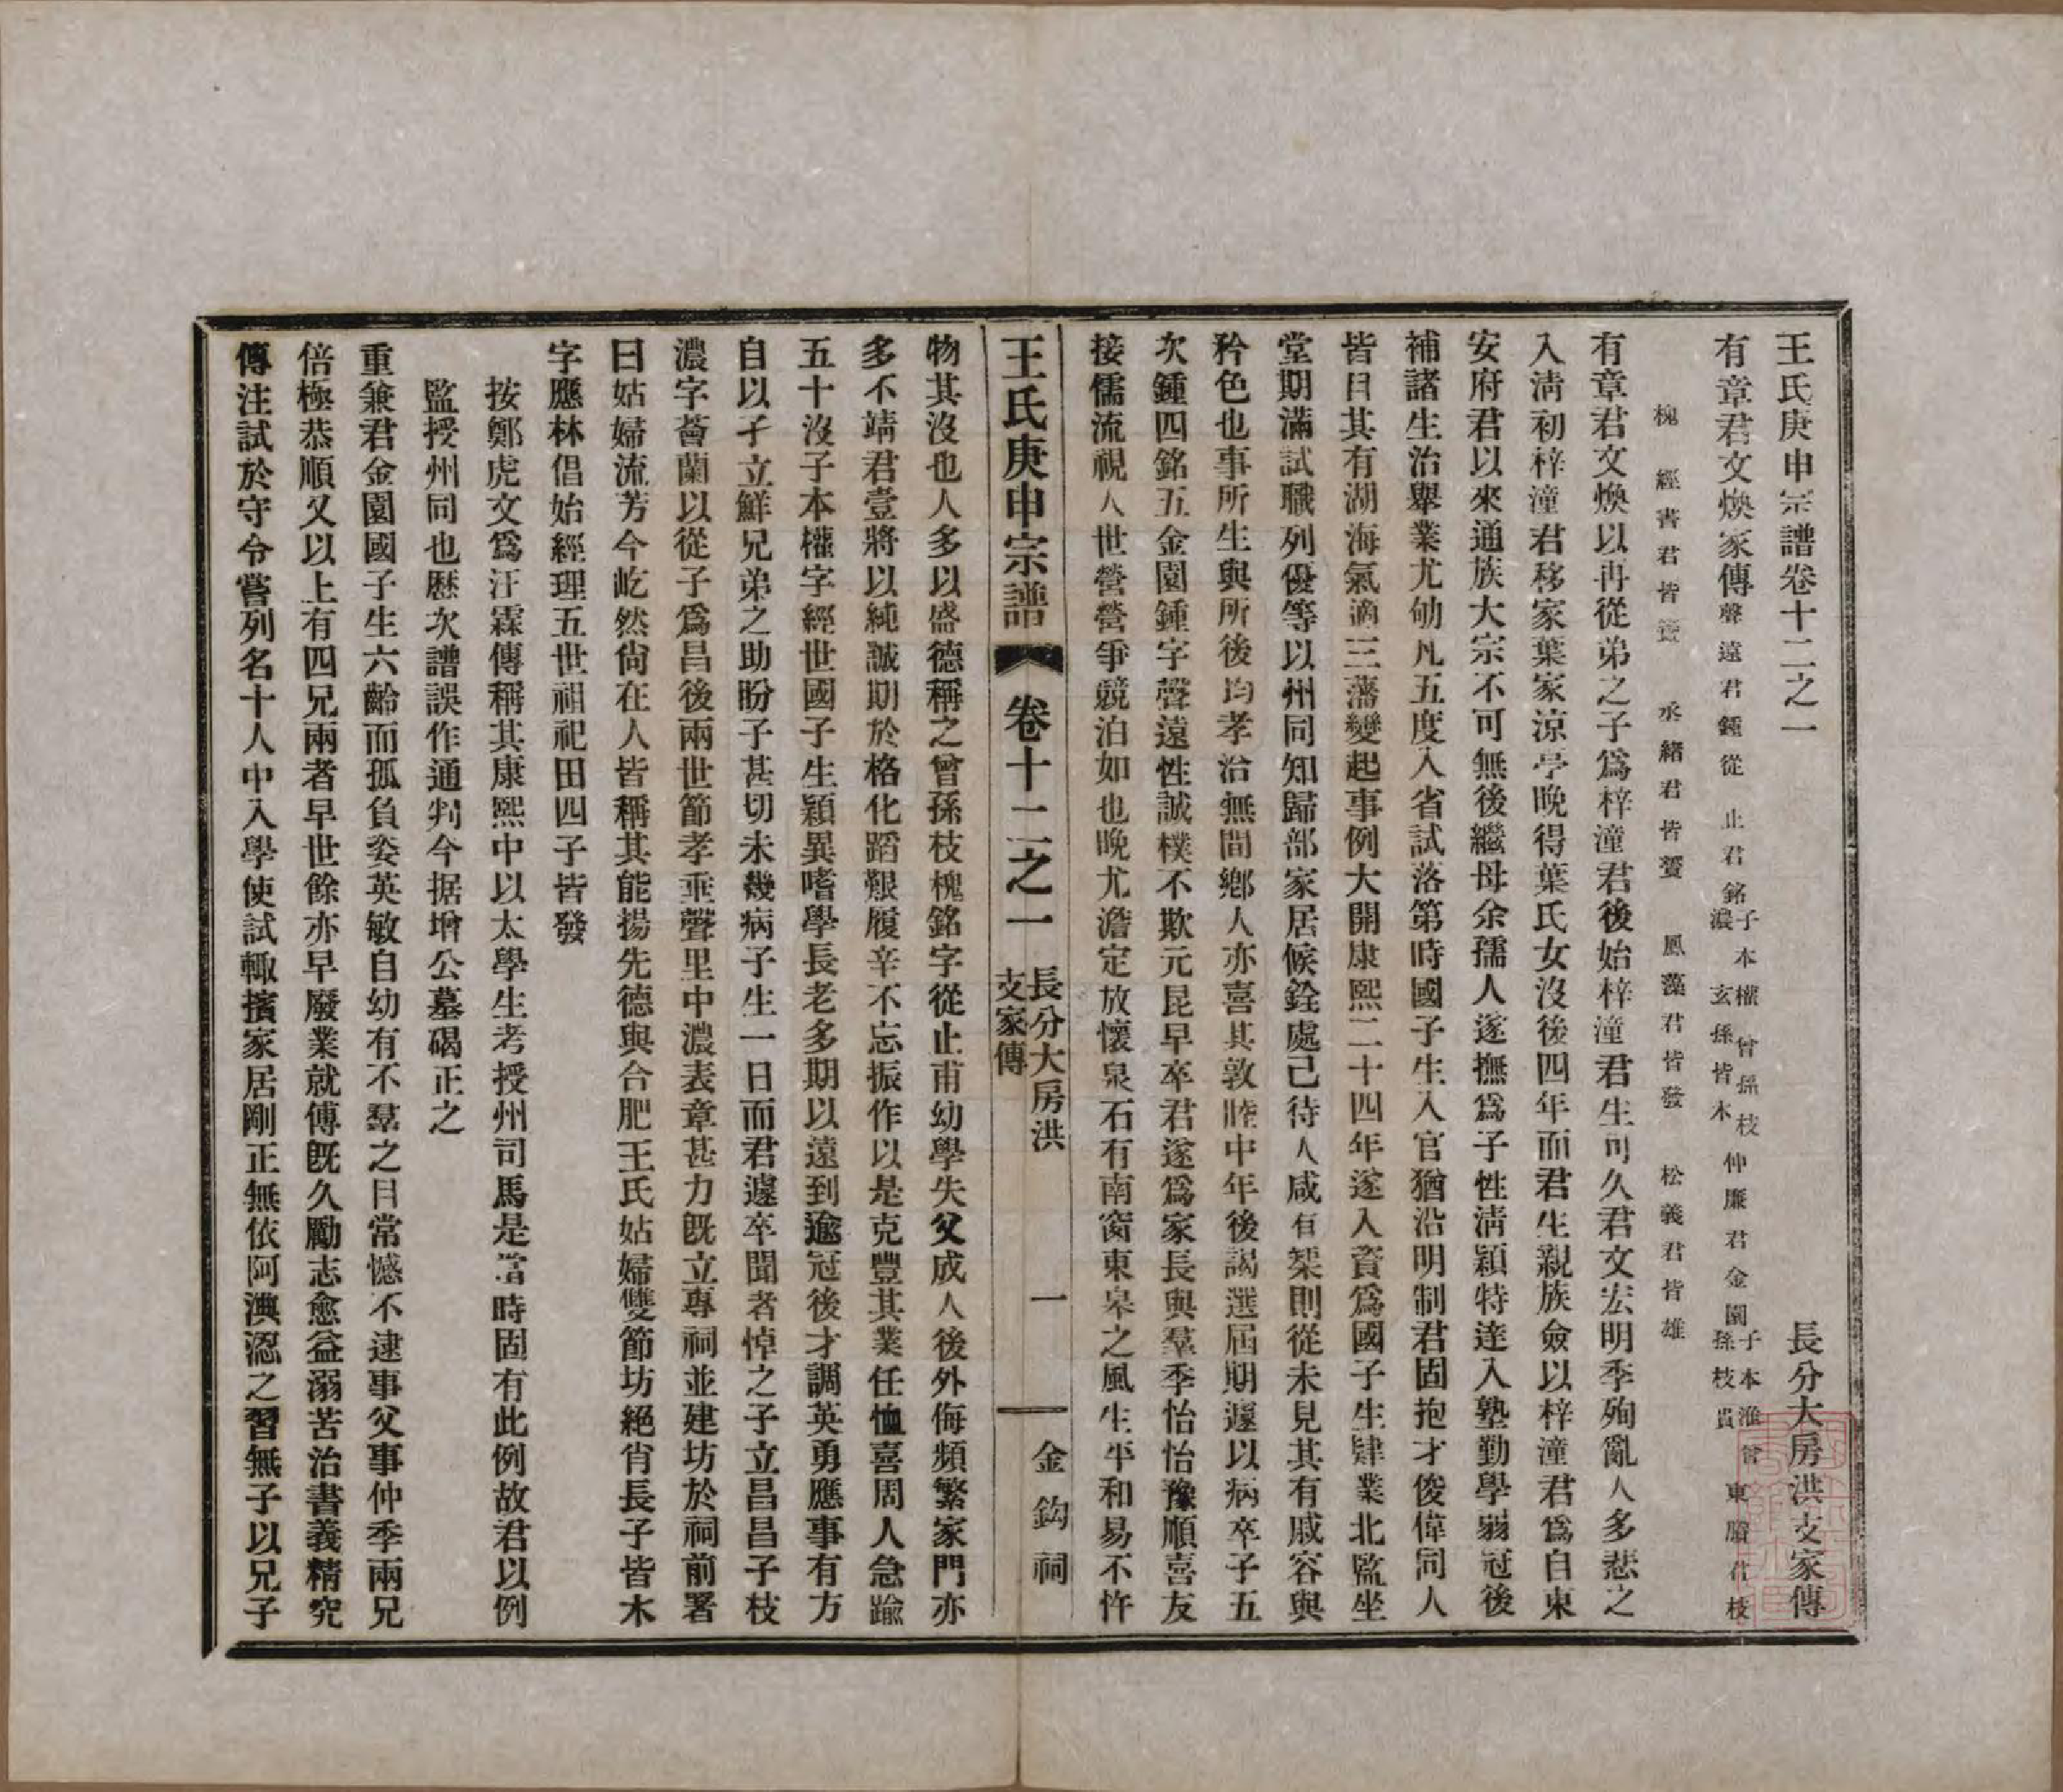 王氏庚申宗譜卷十二之一　長分大房洪支家傳
有章君文煥家傳 聲遠君鍾從 止君銘 子本權 曾孫枝 濃 玄孫皆木 仲廉君金園 子本淮 曾 孫枝貴 東牘君枝
槐 經書君皆瓊 丞緒君皆贊 鳳藻君皆發 松義君皆雄
有章君文煥以再從弟之子爲梓潼君後始梓潼君生可久君文宏明季殉亂人多悲之
入淸初梓潼君移家葉家涼亭晚得葉氏女沒後四年而君生親族僉以梓潼君爲自東
安府君以來通族大宗不可無後繼母余孺人遂撫爲子性淸穎特達入塾勤學弱冠後
補諸生治舉業尤劬凡五度入省試落第時國子生入官猶沿明制君固抱才俊偉同人
皆日其有湖海氣適三藩變起事例大開康熙二十四年遂入資爲國子生肄業北監坐
堂期滿試職列優等以州同知歸部家居候銓處己待人咸有榘則從未見其有戚容與
矜色也事所生與所後均孝治無間鄕人亦喜其敦睦中年後謁選屆期遽以病卒子五
次鍾四銘五金園鍾字聲遠性誠樸不欺元昆早卒君遂爲家長與羣季怡怡豫順喜友
接儒流視人世營營爭競泊如也晚尤澹定放懷泉石有南窗東皋之風生平和易不忤
王氏庚申宗譜　卷十二之一　長分大房洪支家傳　一　金鈎祠
物其沒也人多以盛德稱之曾孫枝槐銘字從止甫幼學失父成人後外侮頻繁家門亦
多不靖君壹將以純誠期於格化蹈艱履辛不忘振作以是克豐其業任恤喜周人急踰
五十沒子本權字經世國子生穎異嗜學長老多期以遠到逾冠後才調英勇應事有方
自以孑立鮮兄弟之助盼子甚切未幾病子生一日而君遽卒聞者悼之子立昌昌子枝
濃字薈蘭以從子爲昌後兩世節孝垂聲里中濃表章甚力旣立專祠並建坊於祠前署
曰姑婦流芳今屹然尙在人皆稱其能揚先德與合肥王氏姑婦雙節坊絕肖長子皆木
字應林倡始經理五世祖祀田四子皆發
按鄭虎文爲汪霖傳稱其康熙中以太學生考授州司馬是當時固有此例故君以例
監授州同也歷次譜誤作通判今据增公墓碣正之
重兼君金園國子生六齡而孤負姿英敏自幼有不羣之目常憾不逮事父事仲季兩兄
倍極恭順又以上有四兄兩者早世餘亦早廢業就傅旣久勵志愈益溺苦治書義精究
傳注試於守令嘗列名十人中入學使試輒擯家居剛正無依阿淟涊之習無子以兄子